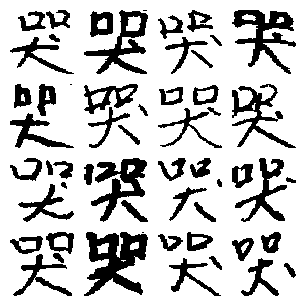 哭哭哭哭
哭哭哭哭
哭哭哭哭
哭哭哭哭